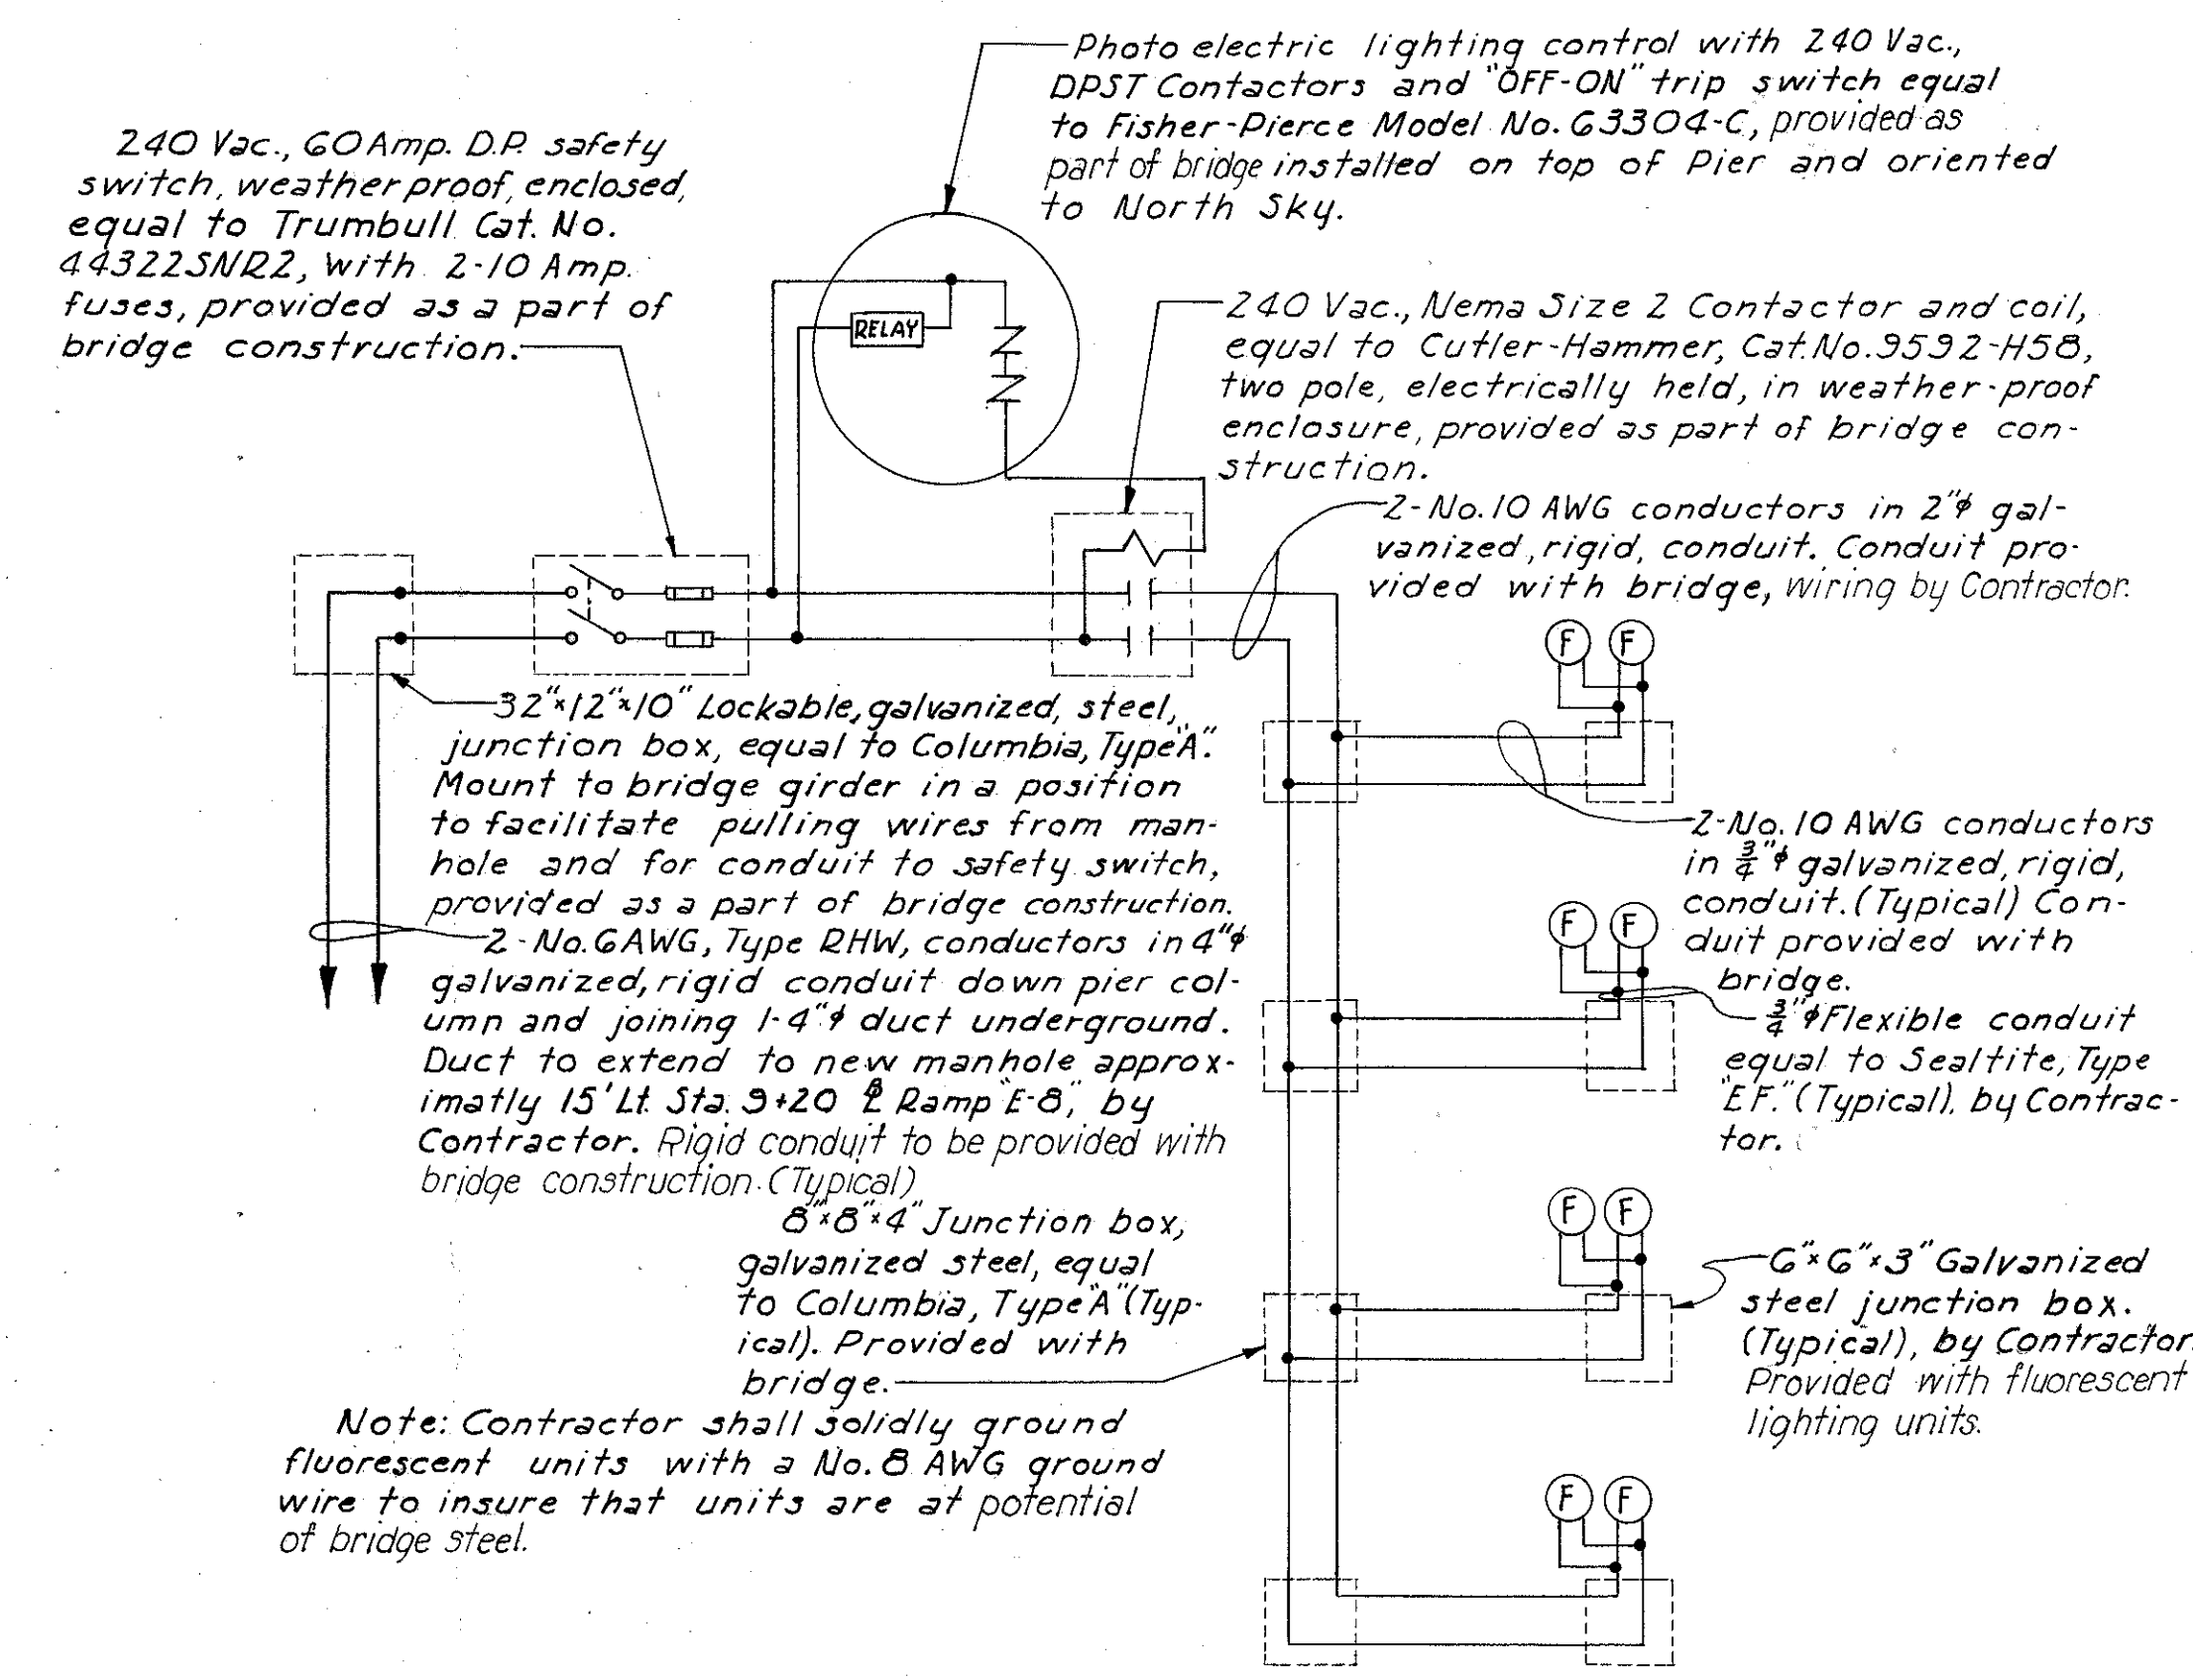 Photo electric lighting control with 240 Vac.,
DPST Contactors and "OFF-ON" trip switch equal
to Fisher-Pierce Model No. 63304-C, provided as
part of bridge installed on top of Pier and oriented
to North Sky.
240 Vac., 60 Amp. D.P. safety
switch, weatherproof, enclosed,
equal to Trumbull Cat. No.
44322SNR2, with 2-10 Amp.
fuses, provided as a part of
bridge construction.
RELAY
240 Vac., Nema Size 2 Contactor and coil,
equal to Cutler-Hammer, Cat. No. 9592-H58,
two pole, electrically held, in weather-proof
enclosure, provided as part of bridge con-
struction.
2-No. 10 AWG conductors in 2"ϕ gal-
vanized, rigid, conduit. Conduit pro-
vided with bridge, wiring by Contractor.
F F
32"x12"x10" Lockable, galvanized, steel,
junction box, equal to Columbia, Type "A".
Mount to bridge girder in a position
to facilitate pulling wires from man-
hole and for conduit to safety switch,
provided as a part of bridge construction.
2-No. 6 AWG, Type RHW, conductors in 4"ϕ
galvanized, rigid conduit down pier col-
umn and joining 1-4"ϕ duct underground.
Duct to extend to new manhole approx-
imatly 15' Lt. Sta. 9+20 ⅊ Ramp "E-8", by
Contractor. Rigid conduit to be provided with
bridge construction. (Typical)
2-No. 10 AWG conductors
in 3/4"ϕ galvanized, rigid,
conduit. (Typical) Con-
duit provided with
bridge.
F F
3/4"ϕ Flexible conduit
equal to Sealtite, Type
"E.F." (Typical), by Contrac-
tor.
8"x8"x4" Junction box,
galvanized steel, equal
to Columbia, Type "A" (Typ-
ical). Provided with
bridge.
F F
6"x6"x3" Galvanized
steel junction box.
(Typical), by Contractor.
Provided with fluorescent
lighting units.
Note: Contractor shall solidly ground
fluorescent units with a No. 8 AWG ground
wire to insure that units are at potential
of bridge steel.
F F